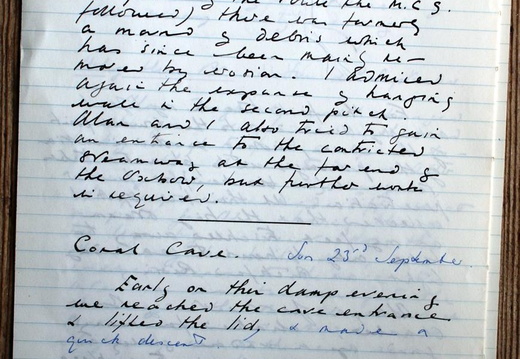 the route the M.C.G.
followed) there was formerly
a mound of debris which
has since been mainly re-
moved by erosion. I admired
again the expanse of hanging
wall in the second pitch.
Alan and I also tried to gain
an entrance to the constricted
streamway at the far end of
the Oxbow, but further work
is required.
Coral Cave. Sun 23rd September.
Early on this damp evening
we reached the cave entrance
& lifted the lid, & made a
quick descent